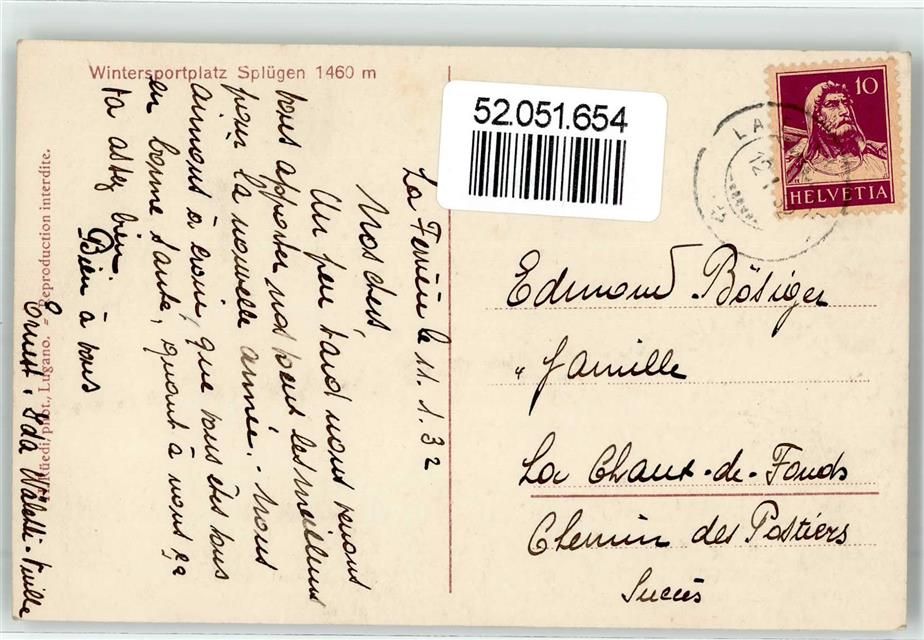 Wintersportplatz Splügen 1460 m
52.051.654
10
HELVETIA
La Ferrière le 11.1.32
Nos chers,
Un peu tard nous venons
vous apporter nos voeux les meilleurs
pour la nouvelle année. Nous
aimons à croire, que vous êtes tous
en bonne santé, quant à nous ça
va assez bien.
Bien à vous
Ernest, Ida
phot., Lugano. - Reproduction interdite.
Edmond Bösiger
" famille
La Chaux-de-Fonds
Chemin des Postiers
Succès